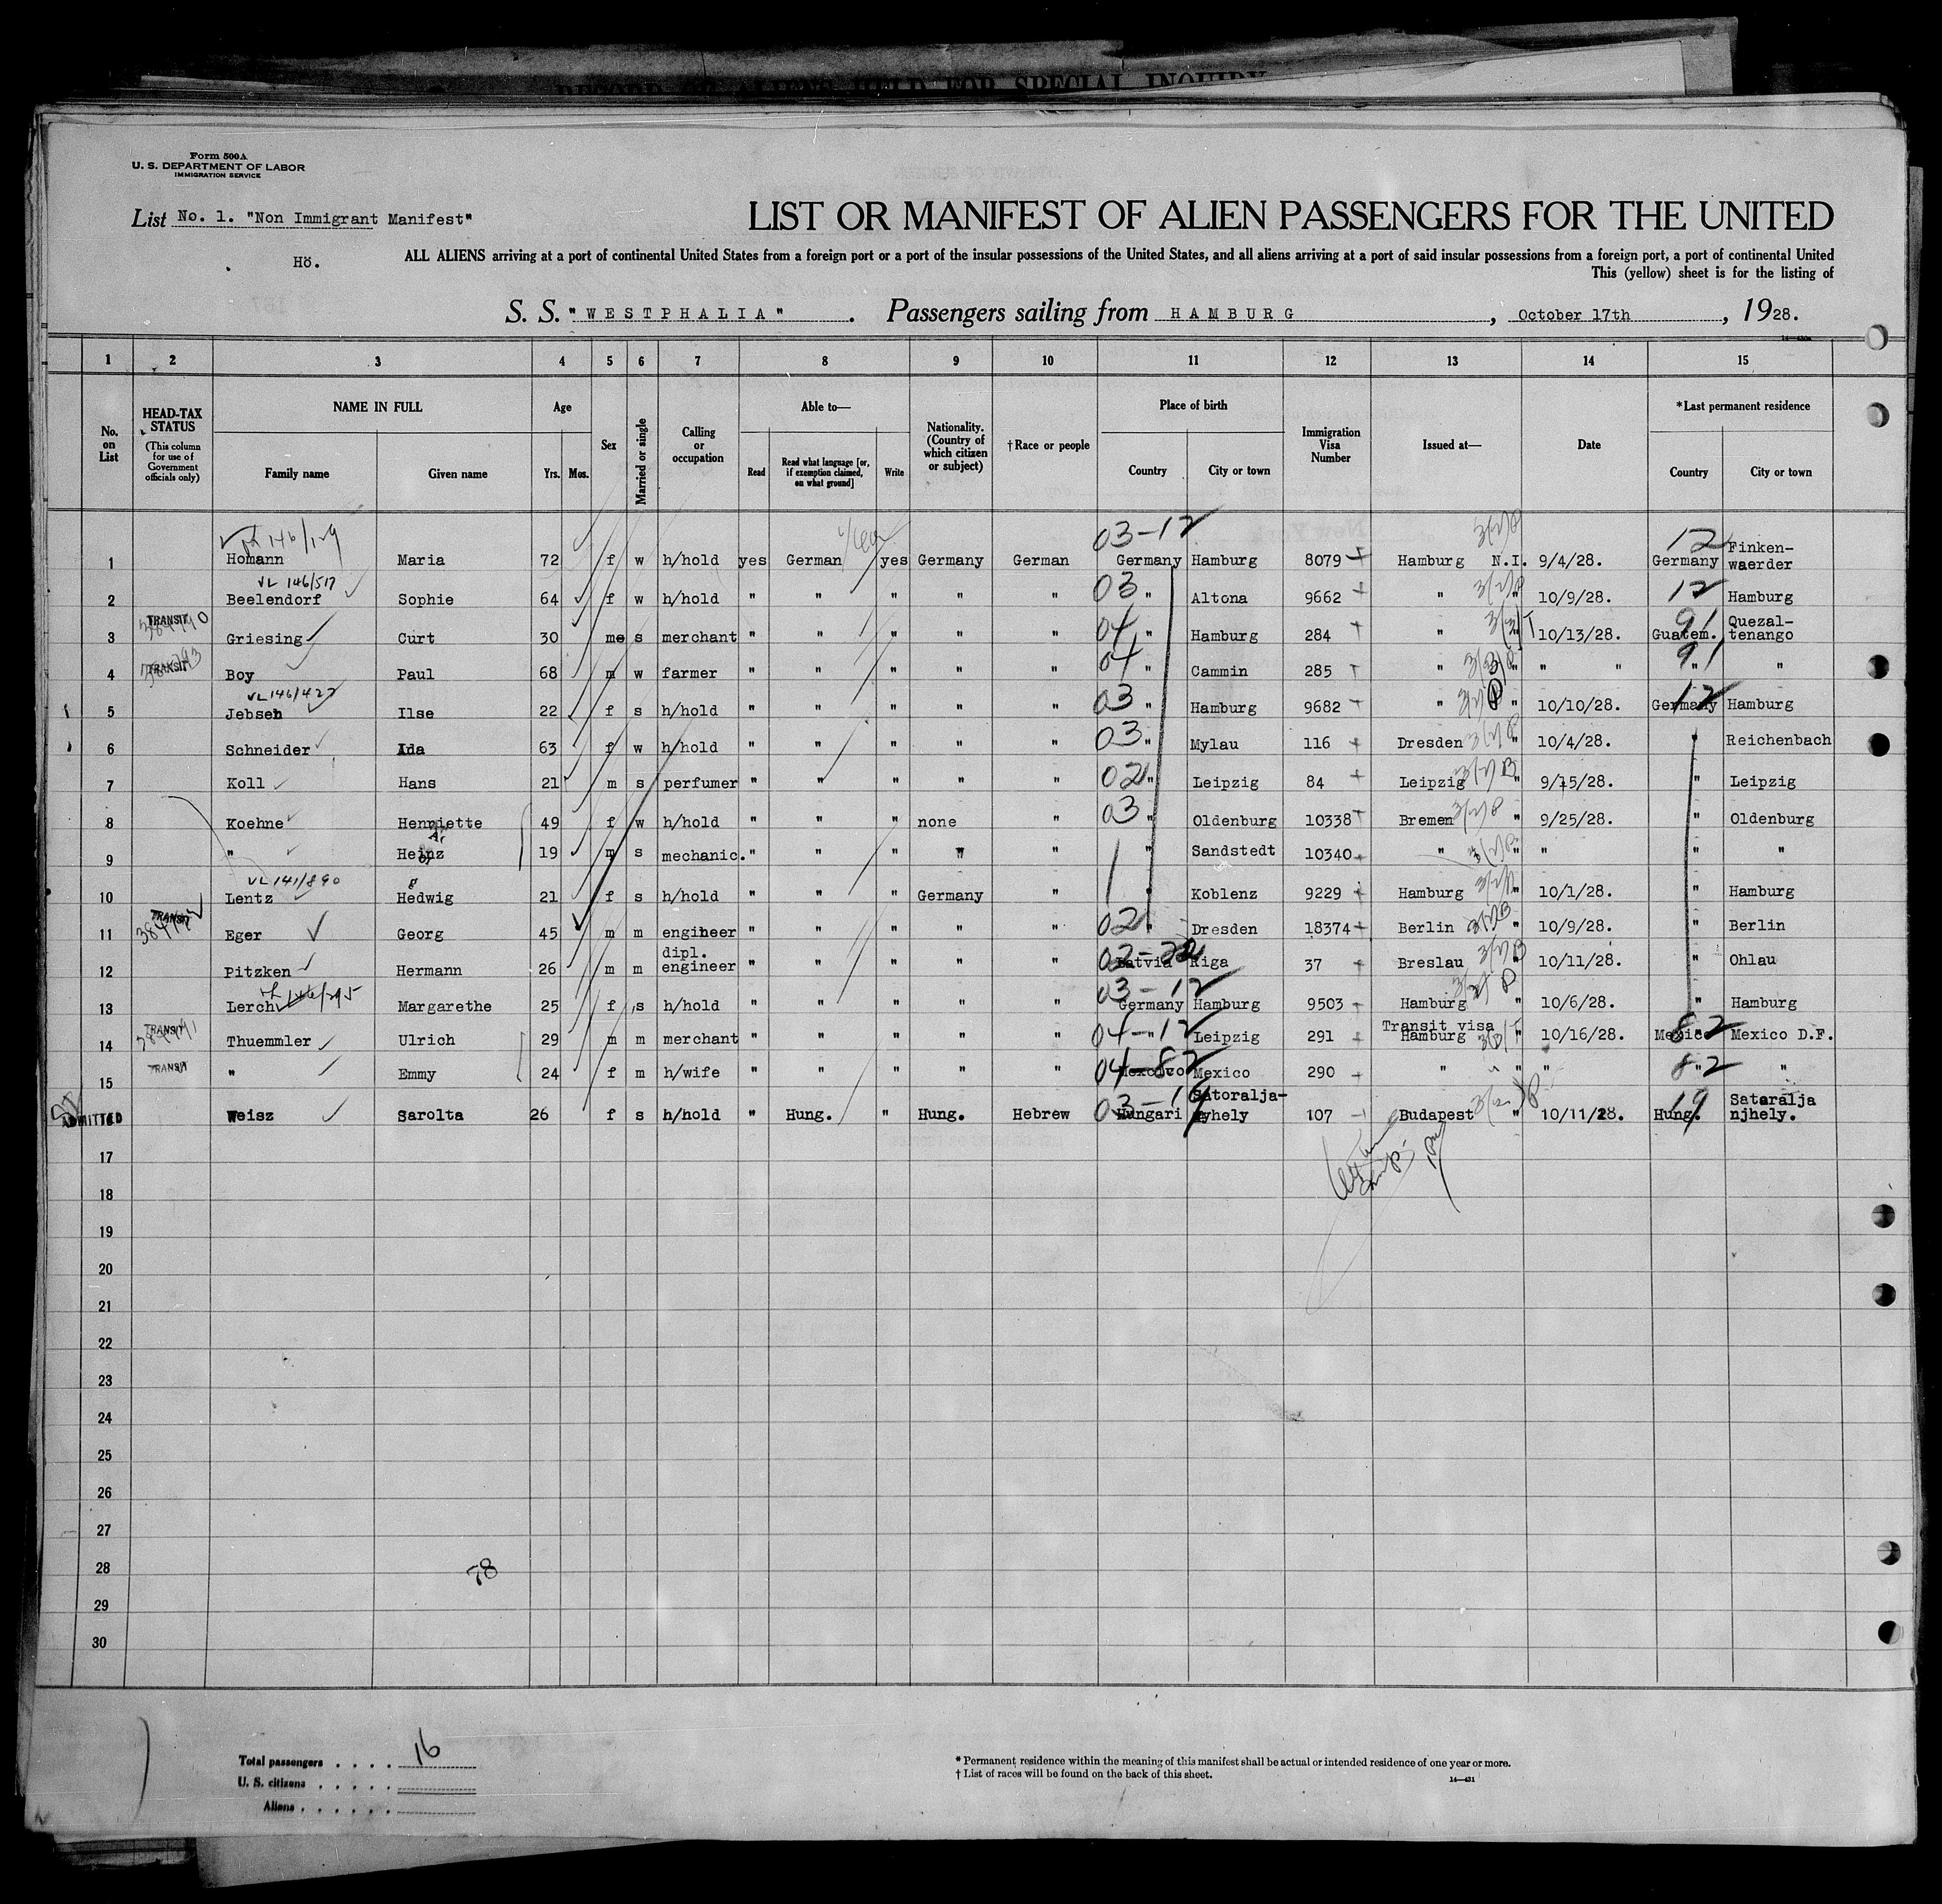 RECORD OF ALIENS HELD FOR SPECIAL INQUIRY
Form 500A
U. S. DEPARTMENT OF LABOR
IMMIGRATION SERVICE
List No. 1. "Non Immigrant Manifest"
LIST OR MANIFEST OF ALIEN PASSENGERS FOR THE UNITED
Hö.
ALL ALIENS arriving at a port of continental United States from a foreign port or a port of the insular possessions of the United States, and all aliens arriving at a port of said insular possessions from a foreign port, a port of continental United
This (yellow) sheet is for the listing of
S. S. "WESTPHALIA". Passengers sailing from HAMBURG, October 17th, 1928.
1 2 3 4 5 6 7 8 9 10 11 12 13 14 15
No. on List
HEAD-TAX STATUS
(This column for use of Government officials only)
NAME IN FULL
Family name Given name
Age
Yrs. Mos.
Sex
Married or single
Calling or occupation
Able to—
Read
Read what language [or, if exemption claimed, on what ground]
Write
Nationality. (Country of which citizen or subject)
†Race or people
Place of birth
Country City or town
Immigration Visa Number
Issued at—
Date
*Last permanent residence
Country City or town
03-12 12
1 Homann Maria 72 f w h/hold yes German yes Germany German Germany Hamburg 8079 Hamburg N.I. 9/4/28. Germany Finken-waerder
VL 146/517
2 Beelendorf Sophie 64 f w h/hold " " " " " 03 " Altona 9662 " " 10/9/28. 12 Hamburg
TRANSIT
3 Griesing Curt 30 m s merchant " " " " " 04 " Hamburg 284 " " 10/13/28. 91 Guatem. Quezal-tenango
TRANSIT
4 Boy Paul 68 m w farmer " " " " " 04 " Cammin 285 " " " " 91 " "
VL 146/427
5 Jebsen Ilse 22 f s h/hold " " " " " 03 " Hamburg 9682 " " 10/10/28. 12 Germany Hamburg
6 Schneider Ida 63 f w h/hold " " " " " 03 " Mylau 116 Dresden " 10/4/28. " Reichenbach
7 Koll Hans 21 m s perfumer " " " " " 02 " Leipzig 84 Leipzig " 9/15/28. " Leipzig
8 Koehne Henriette 49 f w h/hold " " " none " 03 " Oldenburg 10338 Bremen " 9/25/28. " Oldenburg
9 " Heinz 19 m s mechanic. " " " " " " Sandstedt 10340 " " " " "
VL 141/890
10 Lentz Hedwig 21 f s h/hold " " " Germany " " Koblenz 9229 Hamburg " 10/1/28. " Hamburg
TRANSIT
11 Eger Georg 45 m m engineer " " " " " 02 " Dresden 18374 Berlin " 10/9/28. " Berlin
12 Pitzken Hermann 26 m m dipl. engineer " " " " " Latvia Riga 37 Breslau " 10/11/28. " Ohlau
03-12
13 Lerch Margarethe 25 f s h/hold " " " " " Germany Hamburg 9503 Hamburg " 10/6/28. " Hamburg
TRANSIT
14 Thuemmler Ulrich 29 m m merchant " " " " " 04-12 " Leipzig 291 Transit visa Hamburg " 10/16/28. 82 Mexico Mexico D.F.
TRANSIT
15 " Emmy 24 f m h/wife " " " " " 04-82 Mexico 290 " " " 82 " "
ADMITTED 16 Weisz Sarolta 26 f s h/hold " Hung. " Hung. Hebrew 03-19 Hungari Satoralja-njhely 107 Budapest " 10/11/28. 19 Hung. Sataralja njhely.
17
18
19
20
21
22
23
24
25
26
27
28
78
29
30
Total passengers . . . . 16
U. S. citizens . . . . .
Aliens . . . . . .
* Permanent residence within the meaning of this manifest shall be actual or intended residence of one year or more.
† List of races will be found on the back of this sheet.
14—431